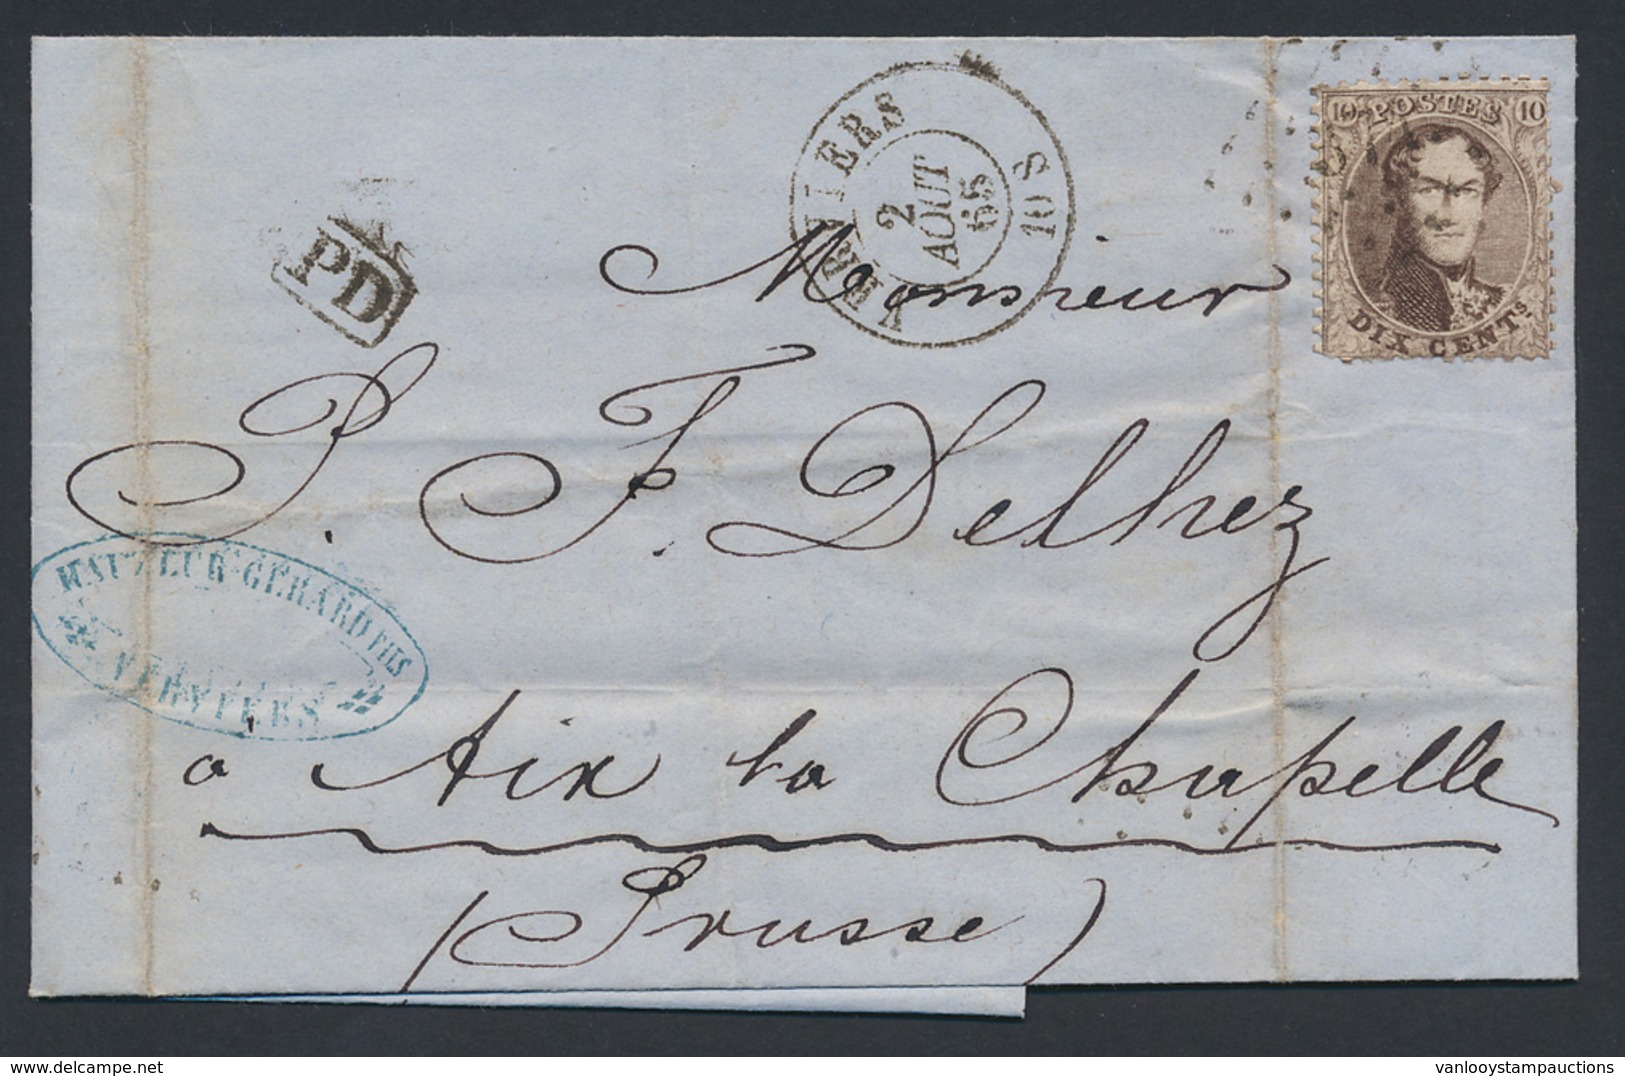 10 POSTES 10
DIX CENTS
VERVIERS
2
AOUT
65
10 S
PD
Monsieur
J. F. Delhez
HAUZEUR-GÉRARD FILS
VERVIERS
à Aix la Chapelle
(Prusse)
vanlooystampauctions.com